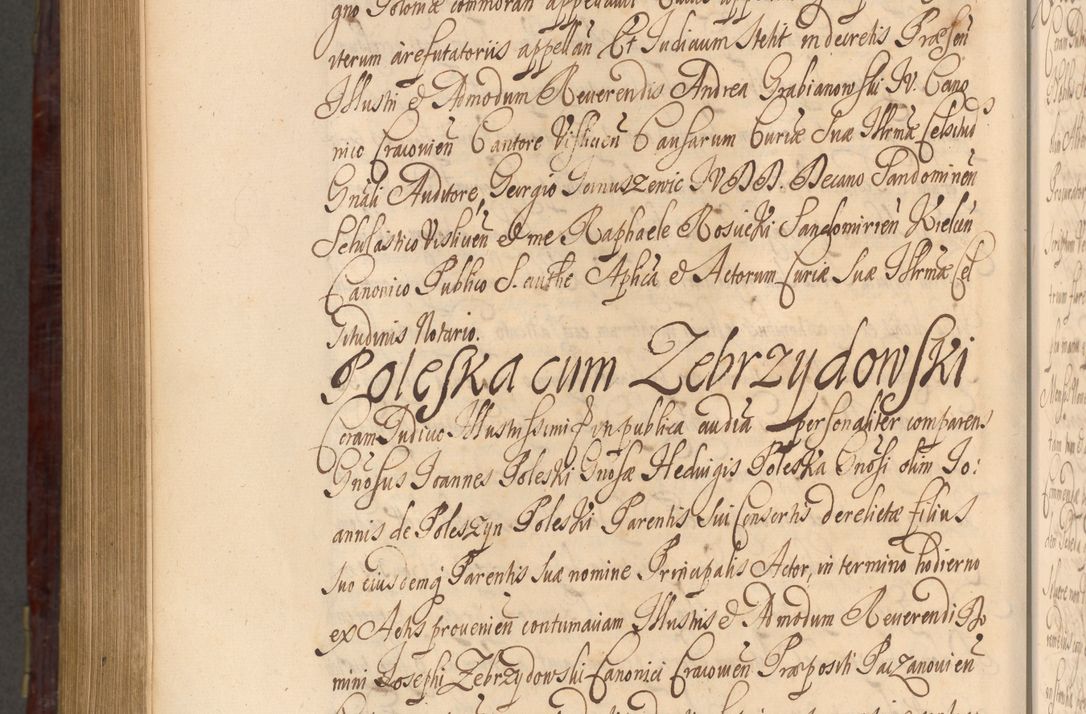 gno Poloniæ commoran appellavit
iterum à refutatoriis appellan Et Judicium stetit in decretis Præsen
Illustri & Admodum Reverendis Andrea Grabianowski JV. Cano
nico Cracovien Cantore Vislicien Causarum Curiæ Suæ Illrmæ Celsitud
Gnâli Auditore, Georgio Januszewic JVDD. Decano Sandomirien
Scholastico Vislicien & me Raphaele Rosicki Sandomirien Kielcen
Canonico Publico S. authe Aplica & Actorum Curiæ Suæ Illrmæ Cel
situdinis Notario.
Poleska cum Zebrzydowski
Coram Judicio Illustrissimi in publica audia personaliter comparens
Gnosus Joannes Poleski Gnosæ Hedvigis Poleska Gnosi olim Jo:
annis de Poleszyn Poleski Parentis Sui Consortis derelictæ filius
suo eiusdemq Parentis suæ nomine Principalis Actor, in termino hodierno
ex Actis provenien contumaciam Illustris & Admodum Reverendi Do
mini Josephi Zebrzydowski Canonici Cracovien Præpositi Paczanovien